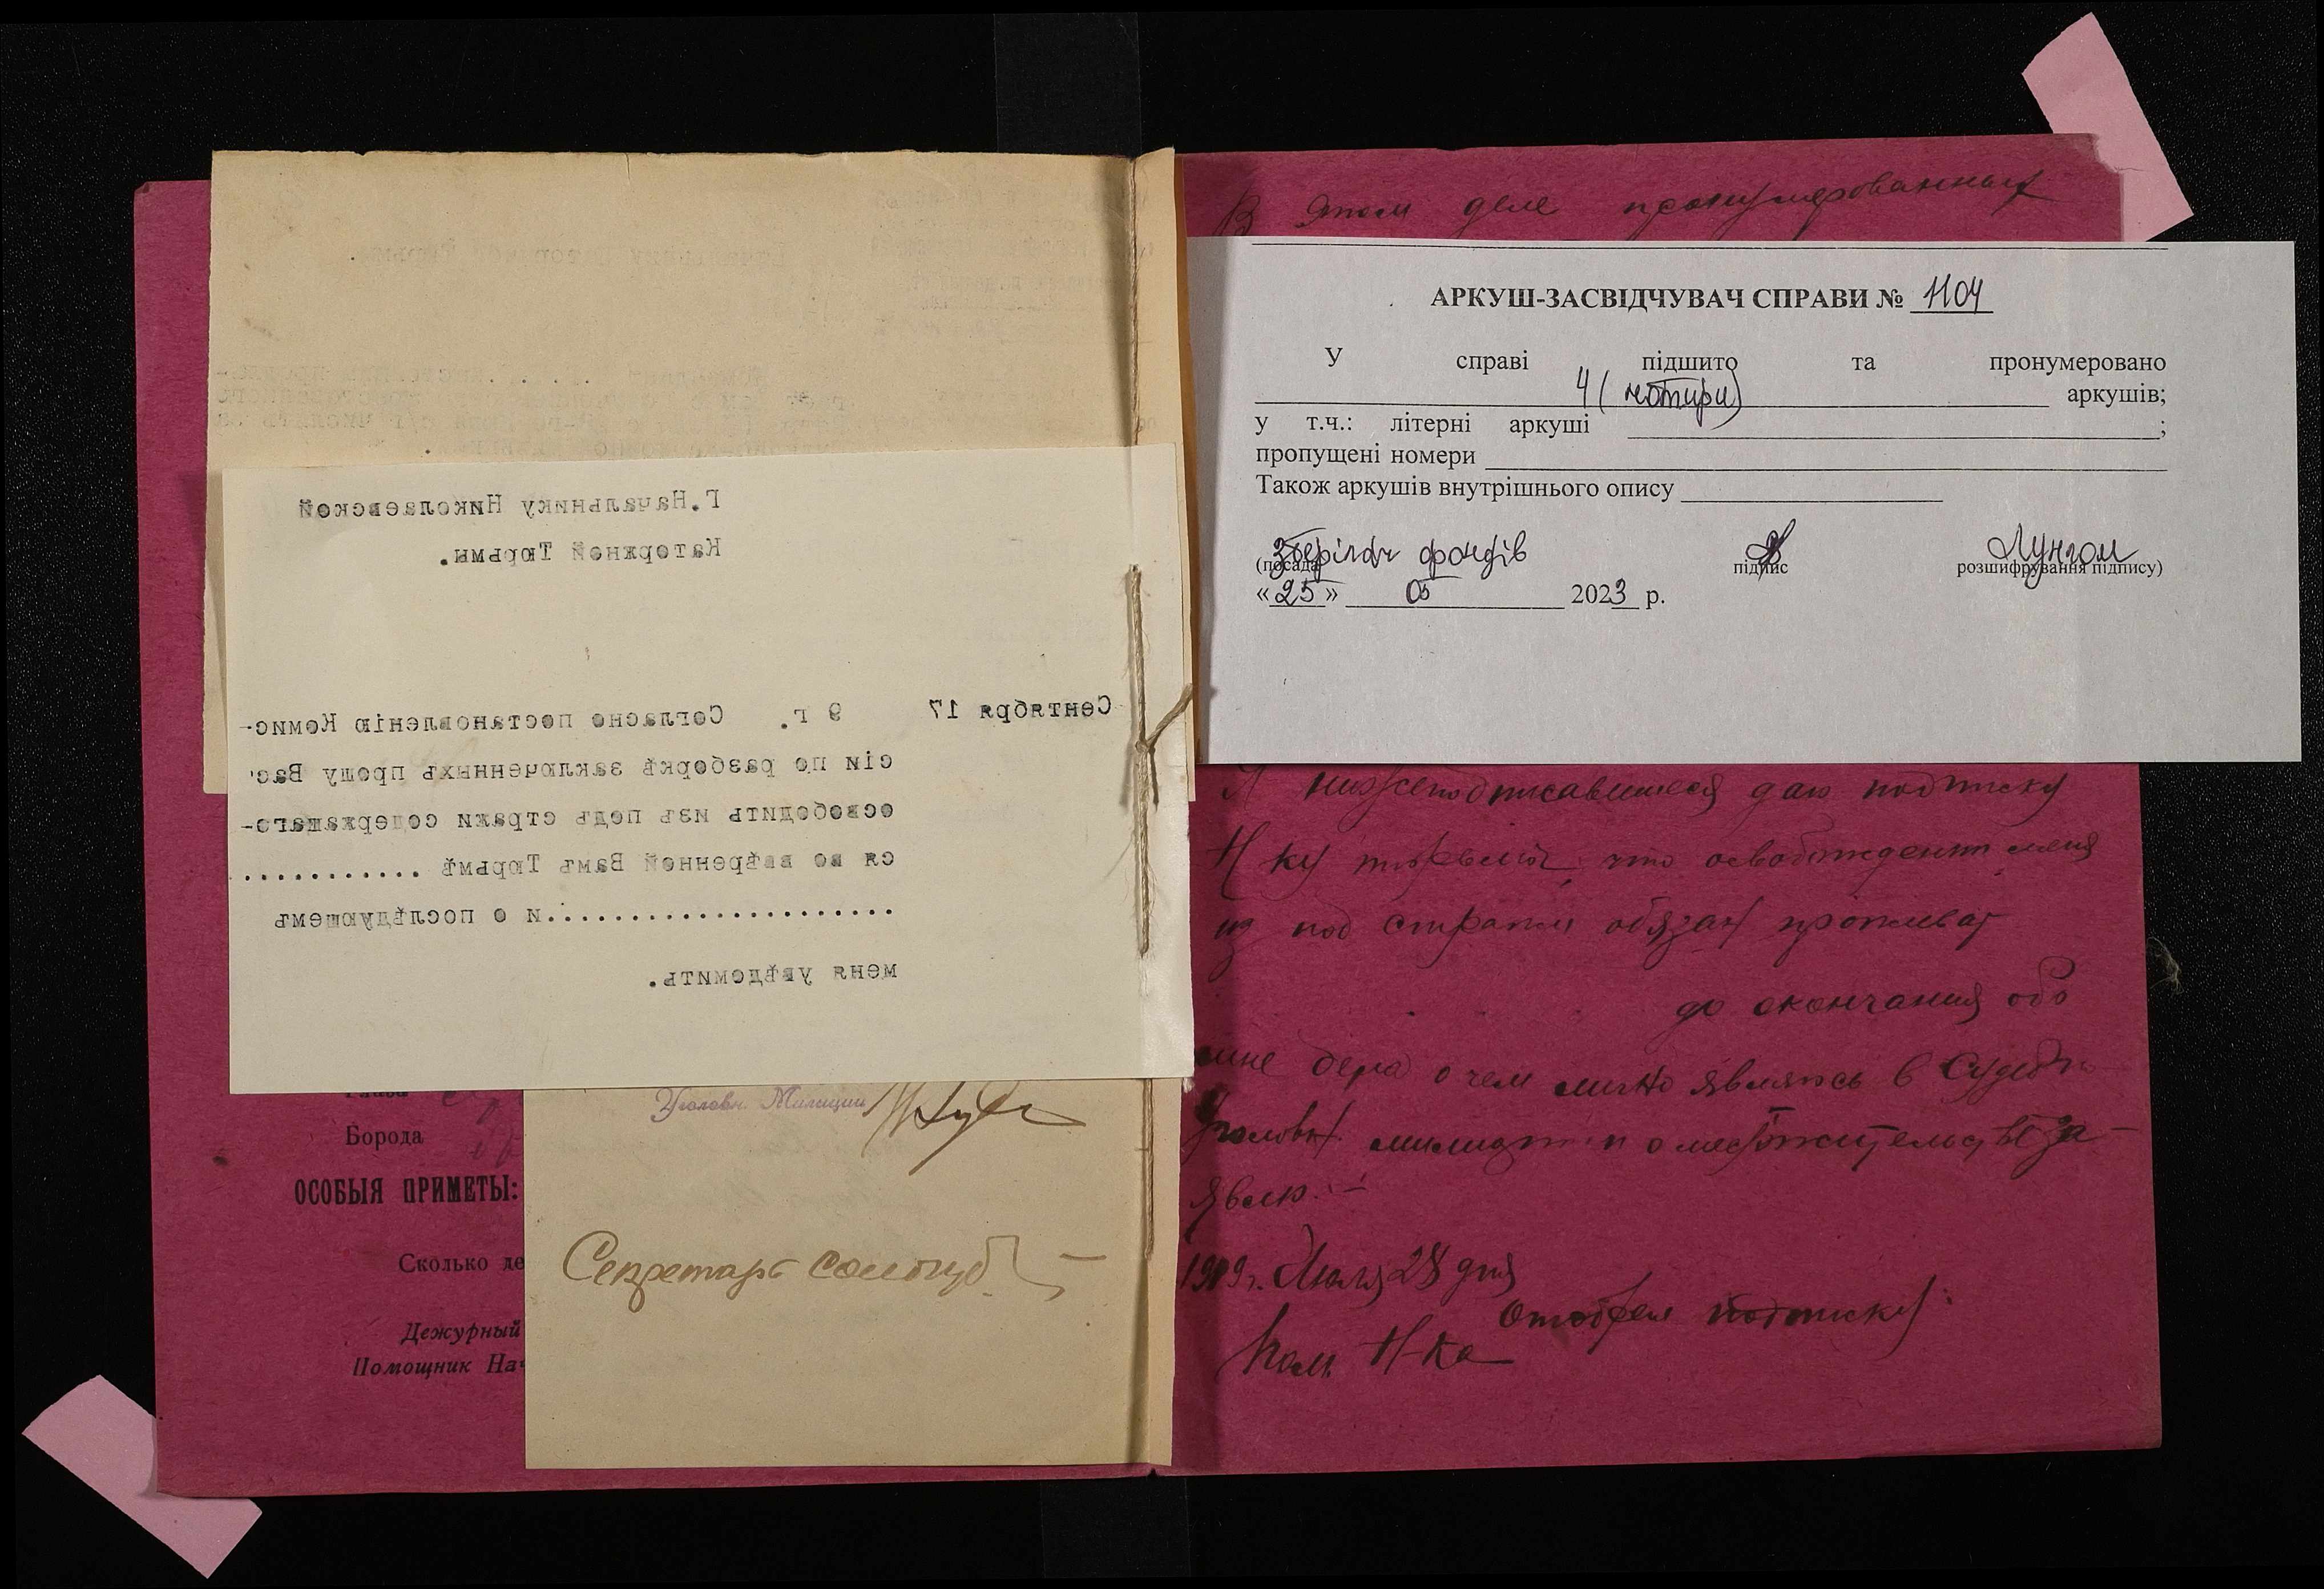 Г.Начальнику Николаевской
Каторжной Тюрьмы.
Сентября 17 9 г. Согласно постановленію Комис-
сіи по разборкѣ заключенныхъ прошу Вас
освободить изъ подъ стражи содержащаго-
ся во ввѣренной Вамъ Тюрьмѣ ............
......................и о послѣдующемъ
меня увѣдомить.
Борода
ОСОБЫЯ ПРИМЕТЫ:
Сколько де
Дежурный
Помощник На
Уголовн. Милиции
Секретарь
В этом деле пронумерованных
АРКУШ-ЗАСВІДЧУВАЧ СПРАВИ № 1104
У справі підшито та пронумеровано
4 (чотири) аркушів;
у т.ч.: літерні аркуші ;
пропущені номери
Також аркушів внутрішнього опису
Зберігач фондів
(посада підпис розшифрування підпису)
«25» 05 2023 р.
Я нижеподписавшиеся даю подписку
Н ку что освобождении меня
из под стражи обязан проживат
до окончания
мне дела о чем лично явлюсь в
Уголовн. милицию и о местожительстве за-
явлю.
1919г. Июля 28 дня
Отобрал подписку
Пом. Н-ка